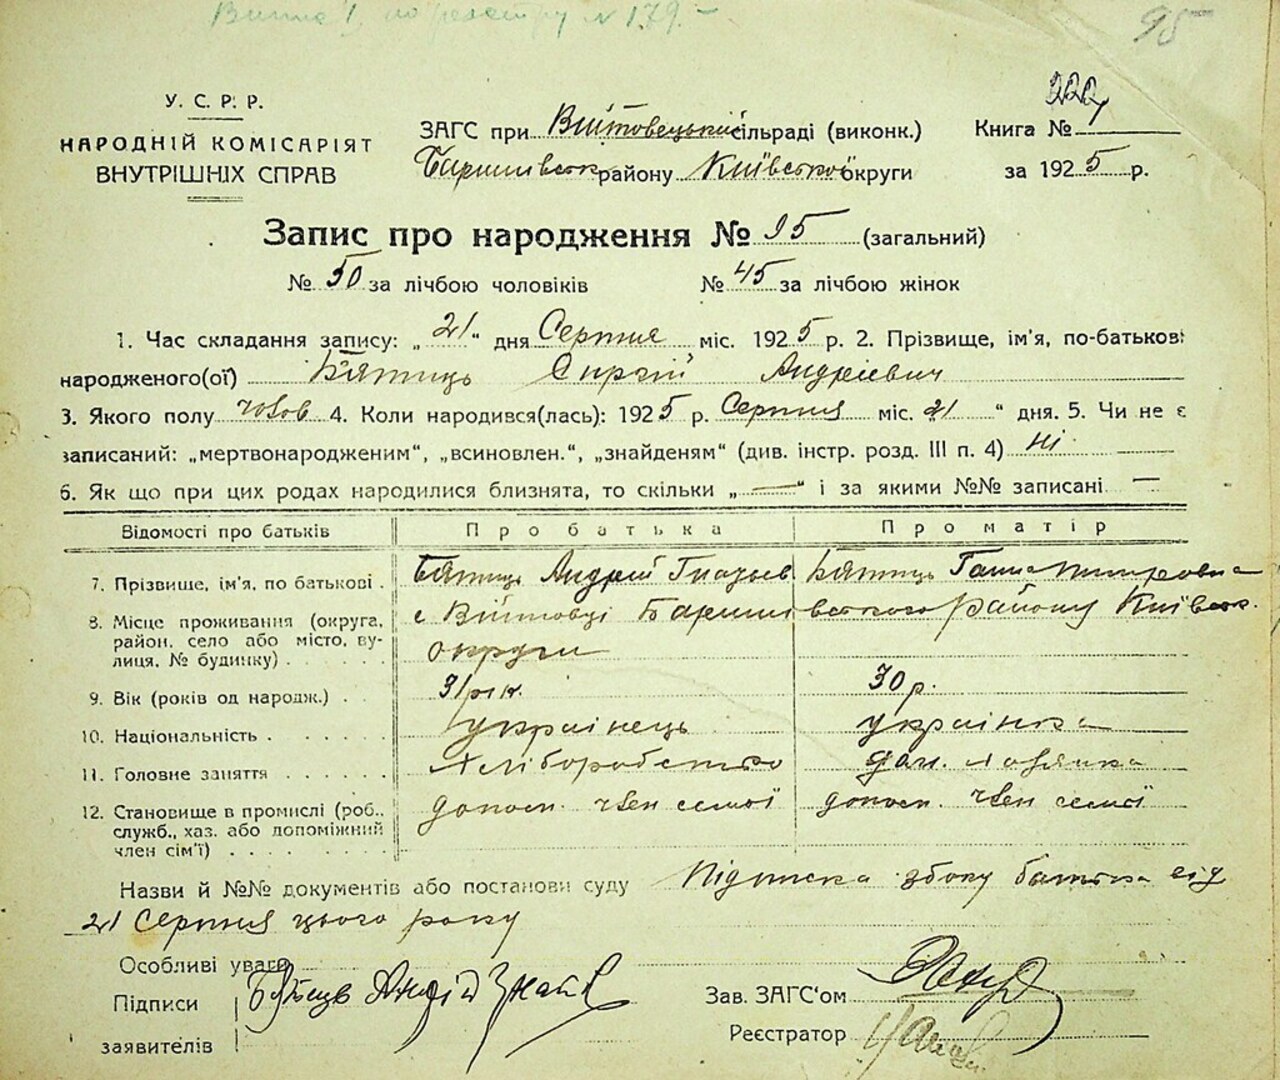 по реєстру № 179. –
95
У. С. Р. Р.
НАРОДНІЙ КОМІСАРІЯТ
ВНУТРІШНІХ СПРАВ
ЗАГС при Війтовецькій сільраді (виконк.)
Баришівськ району Київської округи
Книга №
за 1925 р.
Запис про народження № 95 (загальний)
№ 50 за лічбою чоловіків № 45 за лічбою жінок
1. Час складання запису: „21“ дня Серпня міс. 1925 р. 2. Прізвище, ім'я, по-батькові
народженого(ої) Сиргій Андрієвич
3. Якого полу чолов 4. Коли народився(лась): 1925 р. Серпня міс. 21“ дня. 5. Чи не є
записаний: „мертвонародженим“, „всиновлен.“, „знайденям“ (див. інстр. розд. III п. 4) ні
6. Як що при цих родах народилися близнята, то скільки „—“ і за якими №№ записані —
Відомості про батьків Про батька Про матір
7. Прізвище, ім'я, по батькові . Андрій Ганна
8. Місце проживання (округа, с Війтовці Баришівського району Київськ.
район, село або місто, ву-
лиця, № будинку) . . . . . округи
9. Вік (років од народж.) . . 31 рік. 30 р.
10. Національність . . . . . . українець українка
11. Головне заняття . . . . . . Хліборобство дом. хазяйка
12. Становище в промислі (роб., допом. член семьї допом. член семьї
служб., хаз. або допоміжний
член сім'ї) . . . . . . . .
Назви й №№ документів або постанови суду Підписка збоку батька від
21 Серпня цього року
Особливі уваги
Підписи Андрій
заявителів
Зав. ЗАГС‘ом
Реєстратор